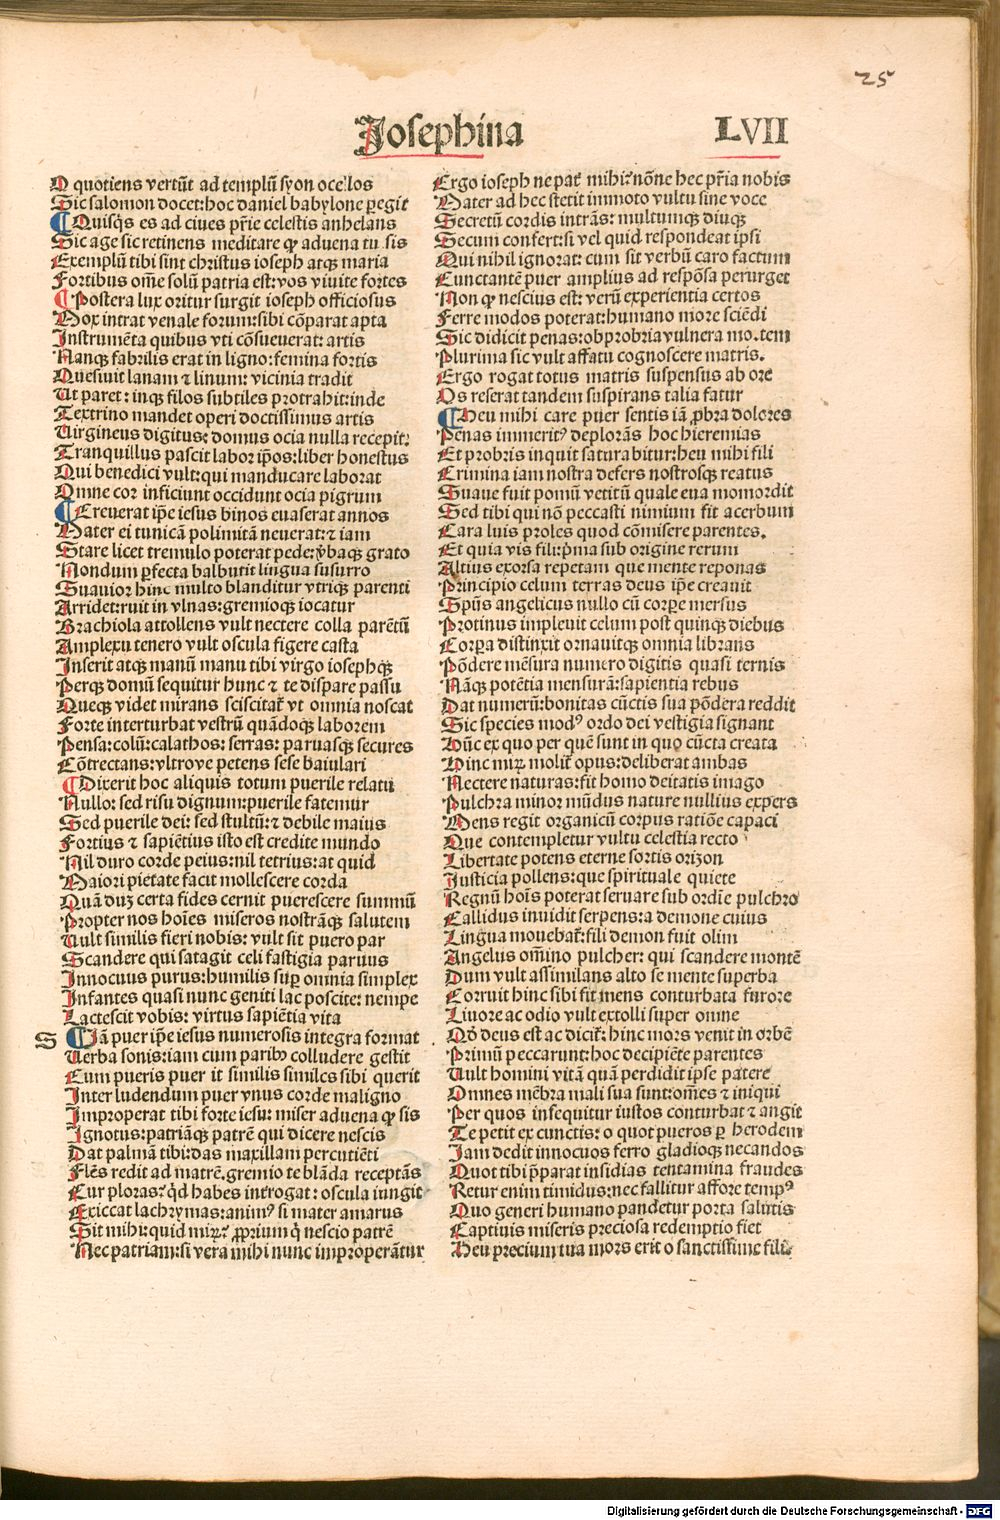 25
Josephina
LVII
O quotiens vertūt ad templū syon oce'los
Sic salomon docet:hoc daniel babylone peregit
¶ Quisq̄s es ad ciues pr̄ie celestis anhelans
Sic age sic retinens meditare ꝙ aduena tu sis
Exemplū tibi sint christus ioseph atqꝫ maria
Fortibus om̄e solū patria est:vos viuite fortes
¶ Postera lux oritur surgit ioseph officiosus
Mox intrat venale forum:sibi cōparat apta
Instrumēta quibus vti cōsueuerat: artis
Nanqꝫ fabrilis erat in ligno:femina fortis
Quesiuit lanam ⁊ linum: vicinia tradit
Ut paret: inqꝫ filos subtiles protrahit:inde
Textrino mandet operi doctissimus artis
Uirgineus digitus: domus ocia nulla recepit:
Tranquillus pascit labor ip̄os:liber honestus
Qui benedici vult:qui manducare laborat
Omne cor inficiunt occidunt ocia pigrum
¶ Creuerat ip̄e iesus binos euaserat annos
Mater ei tunicā polimitā neuerat:⁊ iam
Stare licet tremulo poterat pede:v̄baqꝫ grato
Nondum ꝑfecta balbutit lingua susurro
Suauior hinc multo blanditur vtriqꝫ parenti
Arridet:ruit in vlnas:gremioqꝫ iocatur
Brachiola attollens vult nectere colla parētū
Amplexu tenero vult oscula figere casta
Inserit atqꝫ manū manu tibi virgo iosephqꝫ
Perqꝫ domū sequitur hunc ⁊ te dispare passu
Queqꝫ videt mirans sciscitat̄ vt omnia noscat
Forte interturbat vestrū quādoqꝫ laborem
Pensa:colū:calathos: serras: paruasqꝫ secures
Cōtrectans:vltroye petens sese baiulari
¶ Dixerit hoc aliquis totum puerile relatu
Nullo: sed risu dignum:puerile fatemur
Sed puerile dei: sed stultū:⁊ debile maius
Fortius ⁊ sapiētius isto est credite mundo
Nil duro corde peius:nil tetrius:at quid
Maiori pietate facit mollescere corda
Quā duꝫ certa fides cernit puerescere summū
Propter nos hoīes miseros nostrāqꝫ salutem
Uult similis fieri nobis: vult sit puero par
Scandere qui satagit celi fastigia paruus
Innocuus purus:humilis suꝑ omnia simplex
Infantes quasi nunc geniti lac poscite: nempe
Lactescit vobis: virtus sapiētia vita
S ¶ Iā puer ip̄e iesus numerosis integra format
Uerba sonis:iam cum paribꝫ colludere gestit
Cum pueris puer it similis similes sibi querit
Inter ludendum puer vnus corde maligno
Improperat tibi forte iesu: miser aduena ꝙ sis
Ignotus:patriāqꝫ patrē qui dicere nescis
Dat palmā tibi:das maxillam percutiēti
Flēs redit ad matrē.gremio te blāda receptās
Cur ploras? q̄d habes interogat: oscula iungit
Exiccat lachrymas:animꝰ si mater amarus
Sit mihi:quid miꝝ? ꝓprium q̄ nescio patrē
Nec patriam:si vera mihi nunc improperātur
Ergo ioseph ne pat̄ mihi?nōne hec pr̄ia nobis
Mater ad hec stetit immoto vultu sine voce
Secretū cordis intrās: multumqꝫ diuqꝫ
Secum confert:si vel quid respondeat ipsi
Qui nihil ignorat: cum sit verbū caro factum
Cunctantē puer amplius ad respōsa perurget
Non ꝙ nescius est: verū experientia certos
Ferre modos poterat:humano more sciēdi
Sic didicit penas:obprobria vulnera mo.tem
Plurima sic vult affatu cognoscere matris.
Ergo rogat totus matris suspensus ab ore
Os reserat tandem suspirans talia fatur
¶ Heu mihi care puer sentis iā ꝓbra dolores
Penas immeritꝰ deplorās hoc hieremias
Et probris inquit satura bitur:heu mihi fili
Crimina iam nostra defers nostrosqꝫ reatus
Suaue fuit pomū vetitū quale eua momordit
Sed tibi qui nō peccasti nimium fit acerbum
Cara luis proles quod cōmisere parentes.
Et quia vis fili:p̄ma sub origine rerum
Altius exorsa repetam que mente reponas
Principio celum terras deus ip̄e creauit
Spūs angelicus nullo cū corꝑe mersus
Protinus impleuit celum post quinqꝫ diebus
Corꝑa distinxit ornauitqꝫ omnia librans
Pōdere mēsura numero digitis quasi ternis
Nāqꝫ potētia mensurā:sapientia rebus
Dat numerū:bonitas cūctis sua pōdera reddit
Sic species modꝰ ordo dei vestigia signant
Hūc ex quo per quē sunt in quo cūcta creata
Hinc miꝝ molit̄ opus:deliberat ambas
Nectere naturas:fit homo deitatis imago
Pulchra minor mūdus nature nullius expers
Mens regit organicū corpus ratiōe capaci
Que contempletur vultu celestia recto
Libertate potens eterne sortis orizon
Iusticia pollens:que spirituale quiete
Regnū hoīs poterat seruare sub ordīe pulchro
Callidus inuidit serpens:a demone cuius
Lingua mouebat̄:fili demon fuit olim
Angelus om̄ino pulcher: qui scandere montē
Dum vult assimilans alto se mente superba
Corruit hinc sibi fit mens conturbata furore
Liuore ac odio vult extolli super omne
Qd̄ deus est ac dicit̄: hinc mors venit in orbē
Primū peccarunt:hoc decipiēte parentes
Uult homini vitā quā perdidit ipse patere
Omnes mēbra mali sua sunt:om̄es ⁊ iniqui
Per quos insequitur iustos conturbat ⁊ angit
Te petit ex cunctis: o quot pueros ꝑ herodem
Iam dedit innocuos ferro gladioqꝫ necandos
Quot tibi p̄parat insidias tentamina fraudes
Retur enim timidus:nec fallitur affore tempꝰ
Quo generi humano pandetur porta salutis
Captiuis miseris preciosa redemptio fiet
Heu precium tua mors erit o sanctissime fili:
Digitalisierung gefördert durch die Deutsche Forschungsgemeinschaft - DFG